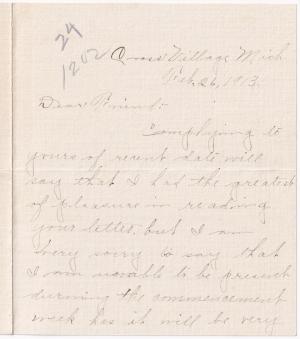 24
1202
Cross Village Mich
Feb. 26, 1913.
Dear Friend:-
Complying to
yours of recent date will
say that I had the greatest
of pleasure in reading
your letter, but I am
very sorry to say that
I am unable to be present
durning the commencement
week has it will be very